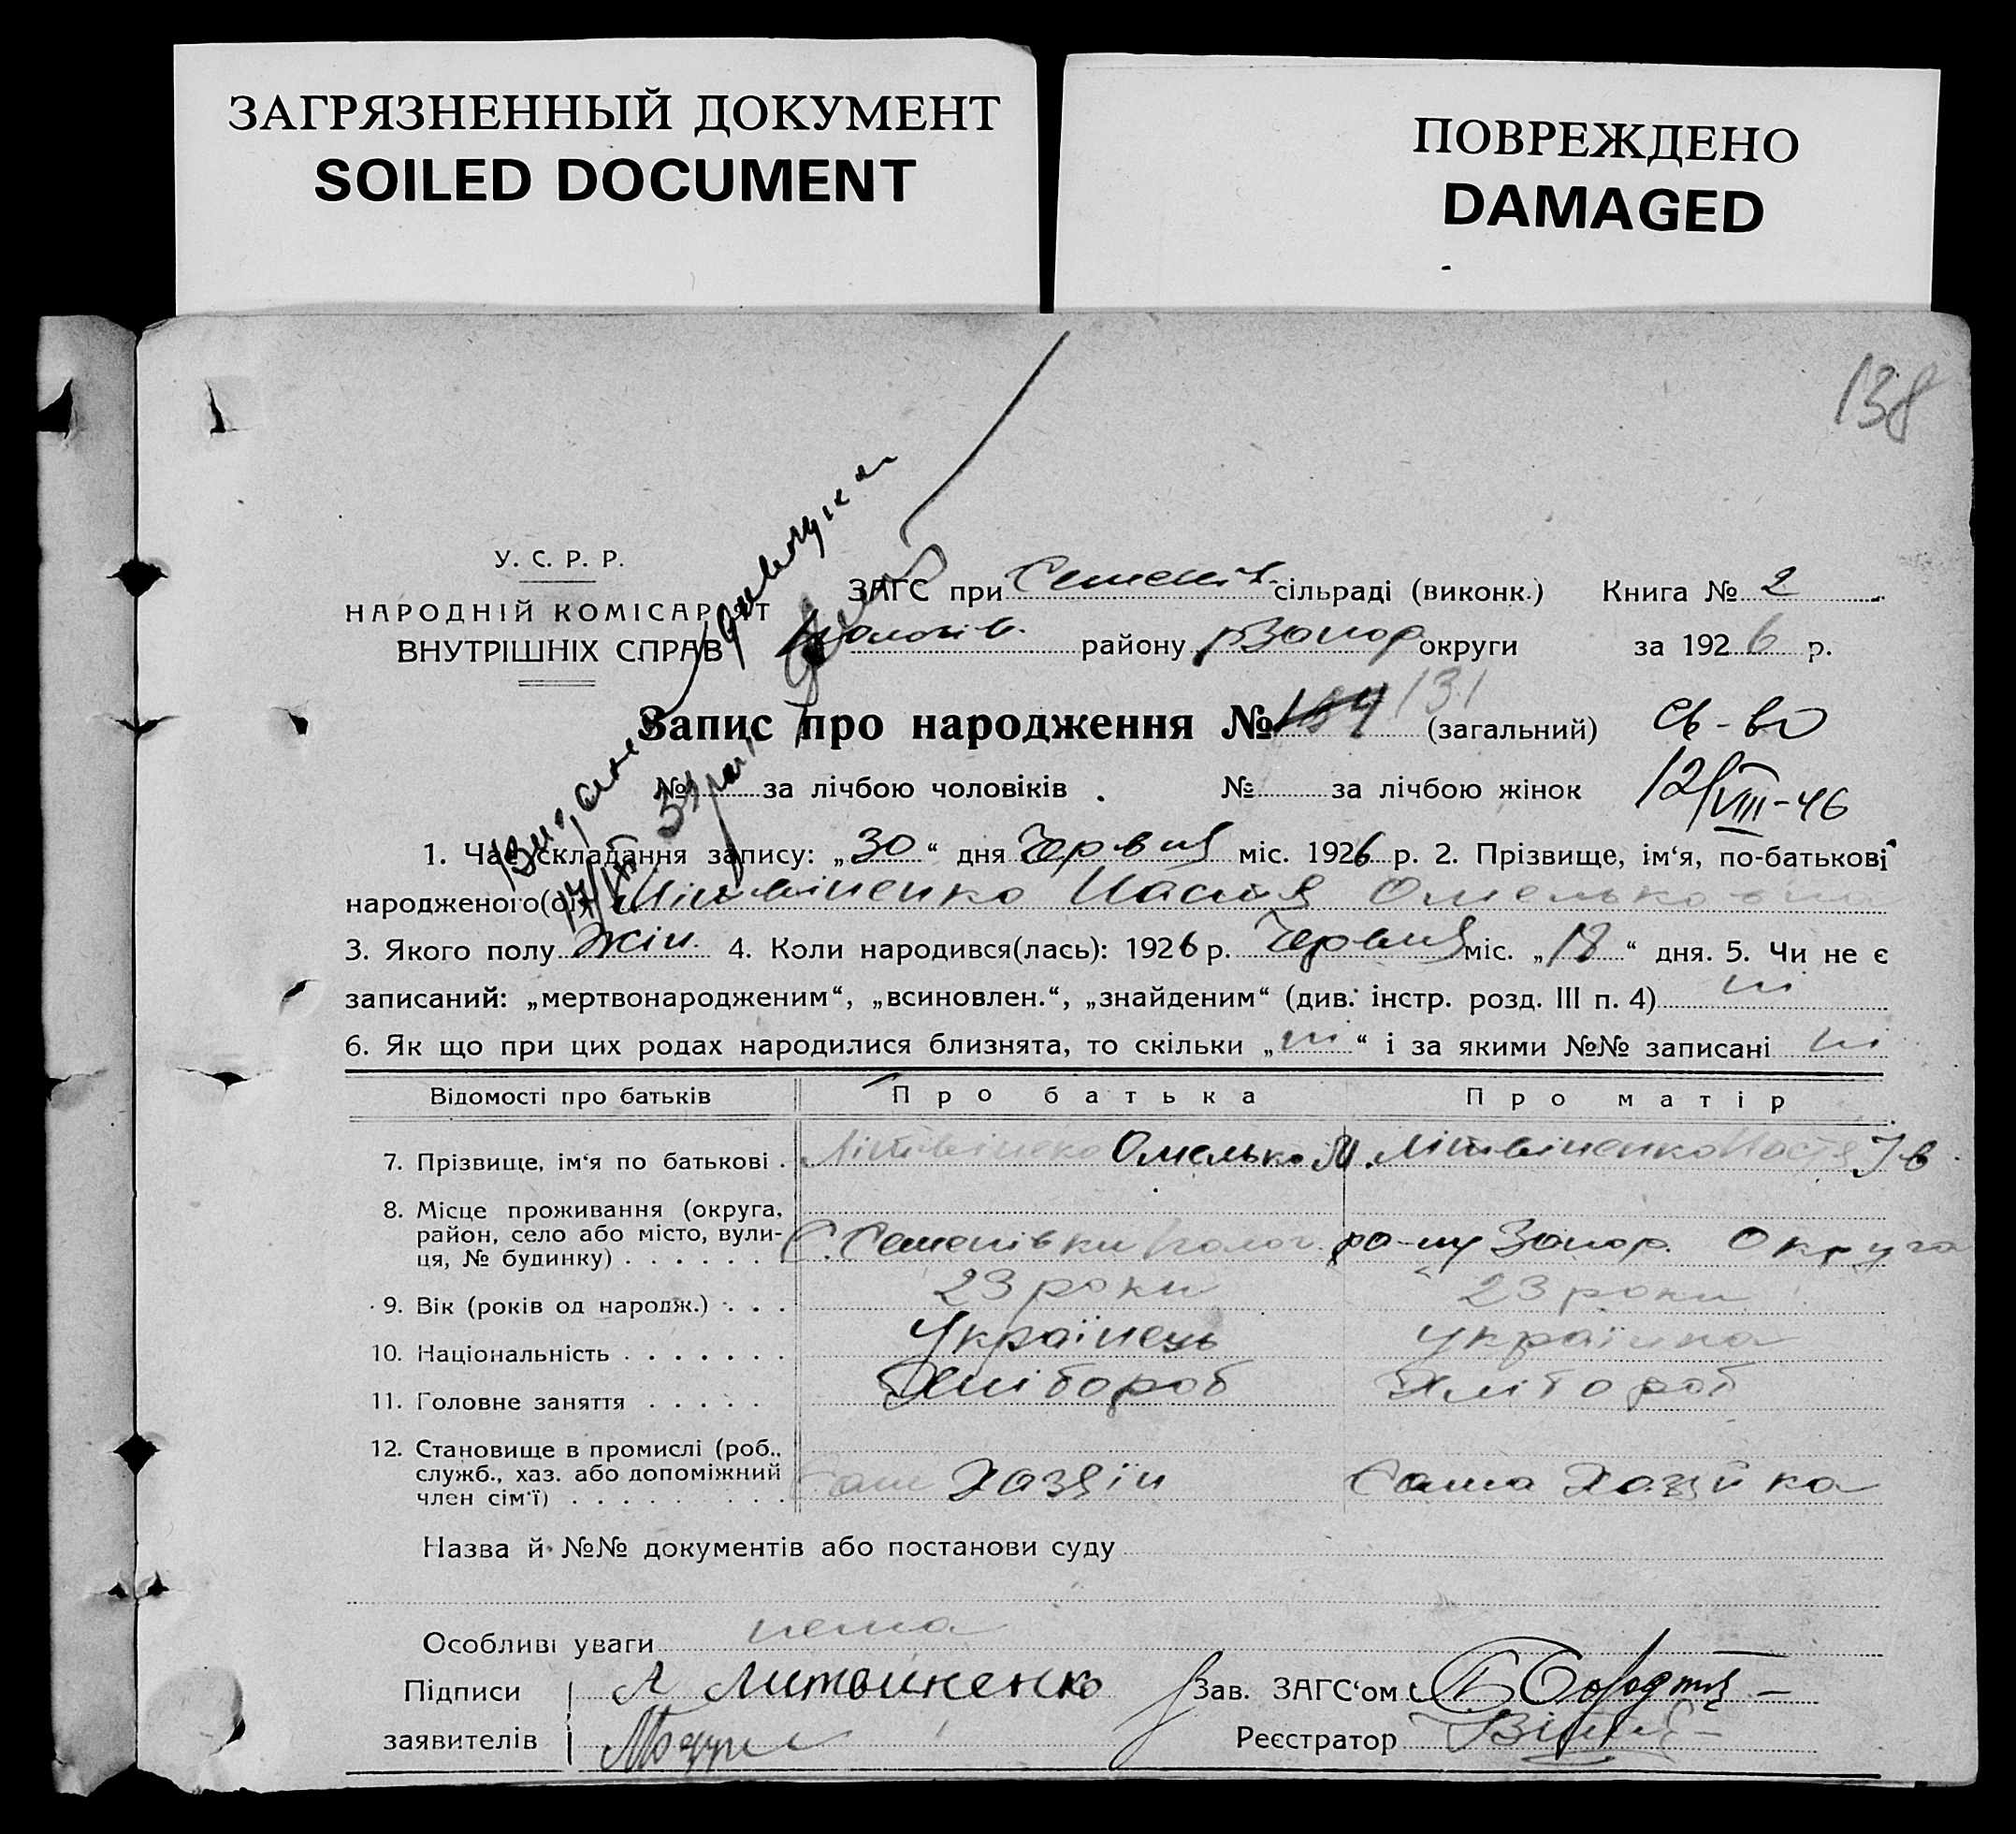 ЗАГРЯЗНЕННЫЙ ДОКУМЕНТ
SOILED DOCUMENT
ПОВРЕЖДЕНО
DAMAGED
138
У. С. Р. Р.
НАРОДНІЙ КОМІСАРІЯТ
ВНУТРІШНІХ СПРАВ
ЗАГС при Семенів. сільраді (виконк.) Книга № 2
Пологів. району Запор округи за 1926 р.
Запис про народження № 131 (загальний) Св-во
№ за лічбою чоловіків . № за лічбою жінок 12/VIII-46
1. Час складання запису: „30“ дня Червня міс. 1926 р. 2. Прізвище, ім‘я, по-батькові
народженого(ої) Літвіненко Настя Омельковна
3. Якого полу жін. 4. Коли народився(лась): 1926 р. Червня міс. „18“ дня. 5. Чи не є
записаний: „мертвонародженим“, „всиновлен.“, „знайденим“ (див. інстр. розд. III п. 4) ні
6. Як що при цих родах народилися близнята, то скільки „ні“ і за якими №№ записані ні
Відомості про батьків Про батька Про матір
7. Прізвище, ім‘я по батькові . Літвінеко Омелько М. Літвіненко Настя Ів
8. Місце проживання (округа,
район, село або місто, вули-
ця, № будинку) . . . . . . С. Семенівки Полог. ра-ну Запор. Округа
9. Вік (років од народж.) . . . 23 роки 23 роки
10. Національність . . . . . . . Українець українка
11. Головне заняття . . . . . Хлібороб Хлібороб
12. Становище в промислі (роб.,
служб., хаз. або допоміжний
член сім‘ї) . . . . . . . . . Сам Хазяїн Сама Хазяйка
Назва й №№ документів або постанови суду
Особливі уваги нема
Підписи Л Литвиненко Зав. ЗАГС‘ом
заявителів Реєстратор